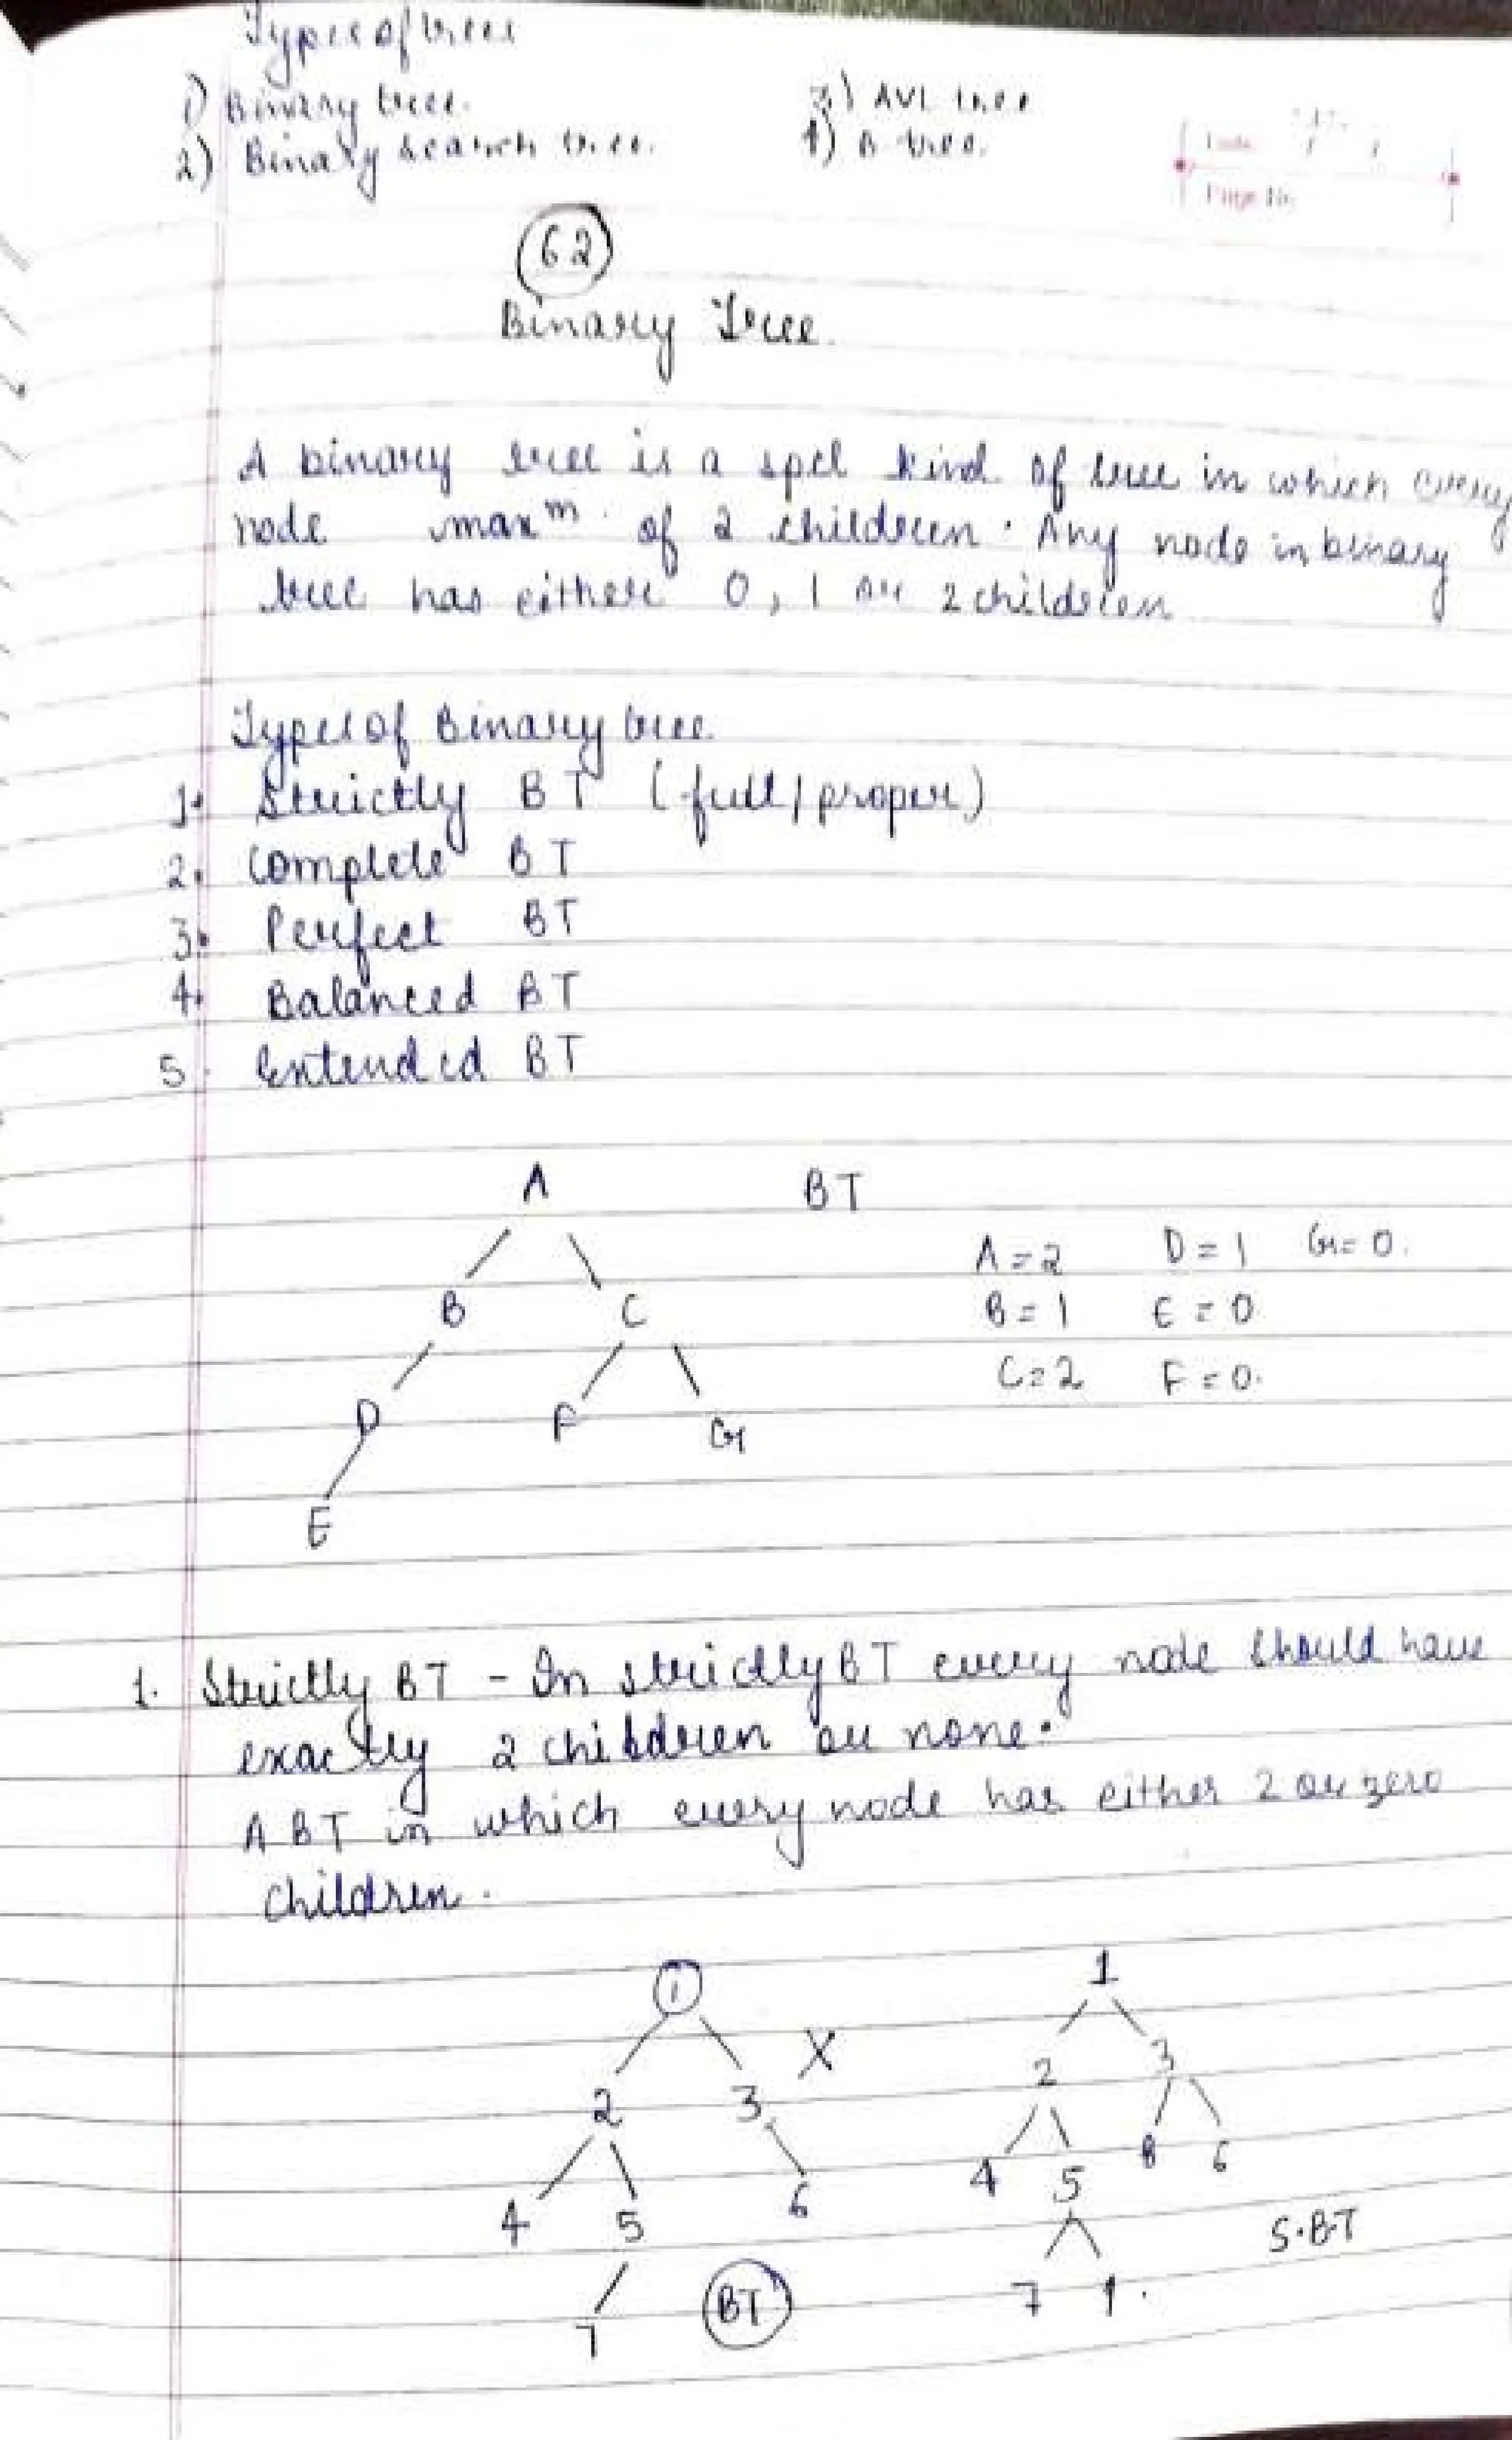 Types of tree
1) Binary tree. 3) AVL tree
2) Binary search tree. 4) B-tree.
Page No.
62
Binary Tree.
A binary tree is a spcl kind of tree in which every
node maxᵐ. of 2 children. Any node in binary
tree has either 0, 1 or 2 children
Types of Binary tree.
1. Strictly BT (full/proper)
2. Complete BT
3. Perfect BT
4. Balanced BT
5. Extended BT
A BT
A = 2 D = 1 G = 0.
B C B = 1 E = 0
C = 2 F = 0.
D F G
E
1. Strictly BT - In strictly BT every node should have
exactly 2 children or none.
A BT in which every node has either 2 or zero
children.
1 X 1
2 3 2 3
4 5 6 4 5 8 6
7 BT 7 1. S.BT